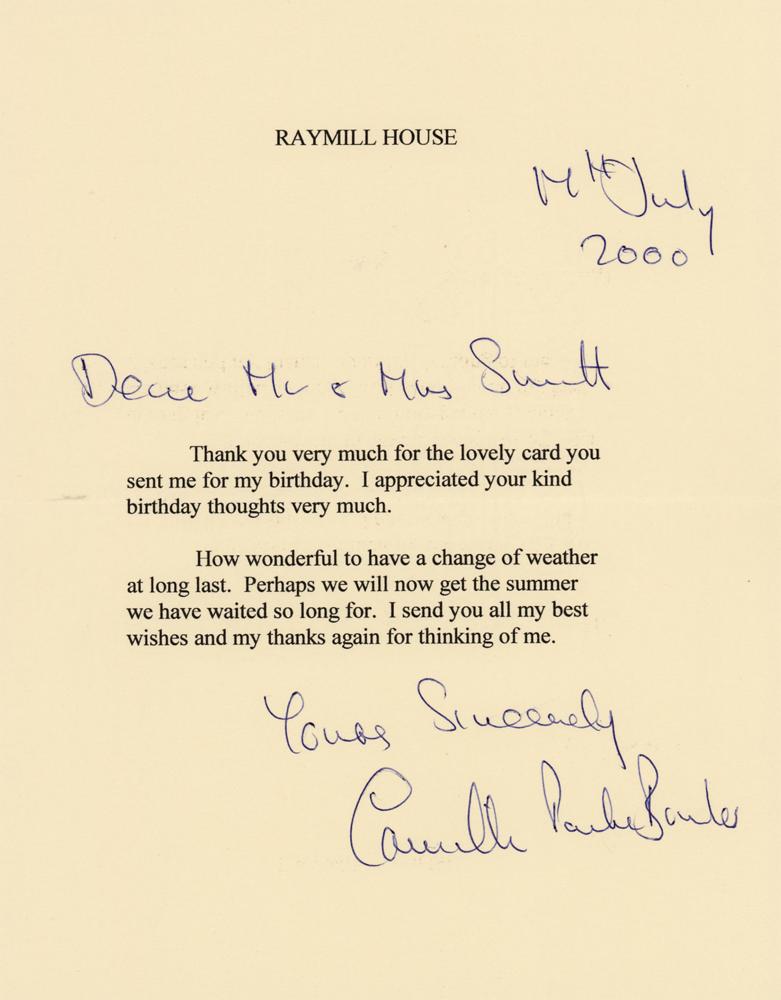 RAYMILL HOUSE
July
2000
Dear Mr & Mrs Smith
Thank you very much for the lovely card you
sent me for my birthday. I appreciated your kind
birthday thoughts very much.
How wonderful to have a change of weather
at long last. Perhaps we will now get the summer
we have waited so long for. I send you all my best
wishes and my thanks again for thinking of me.
Yours Sincerely
Camilla Parker Bowles